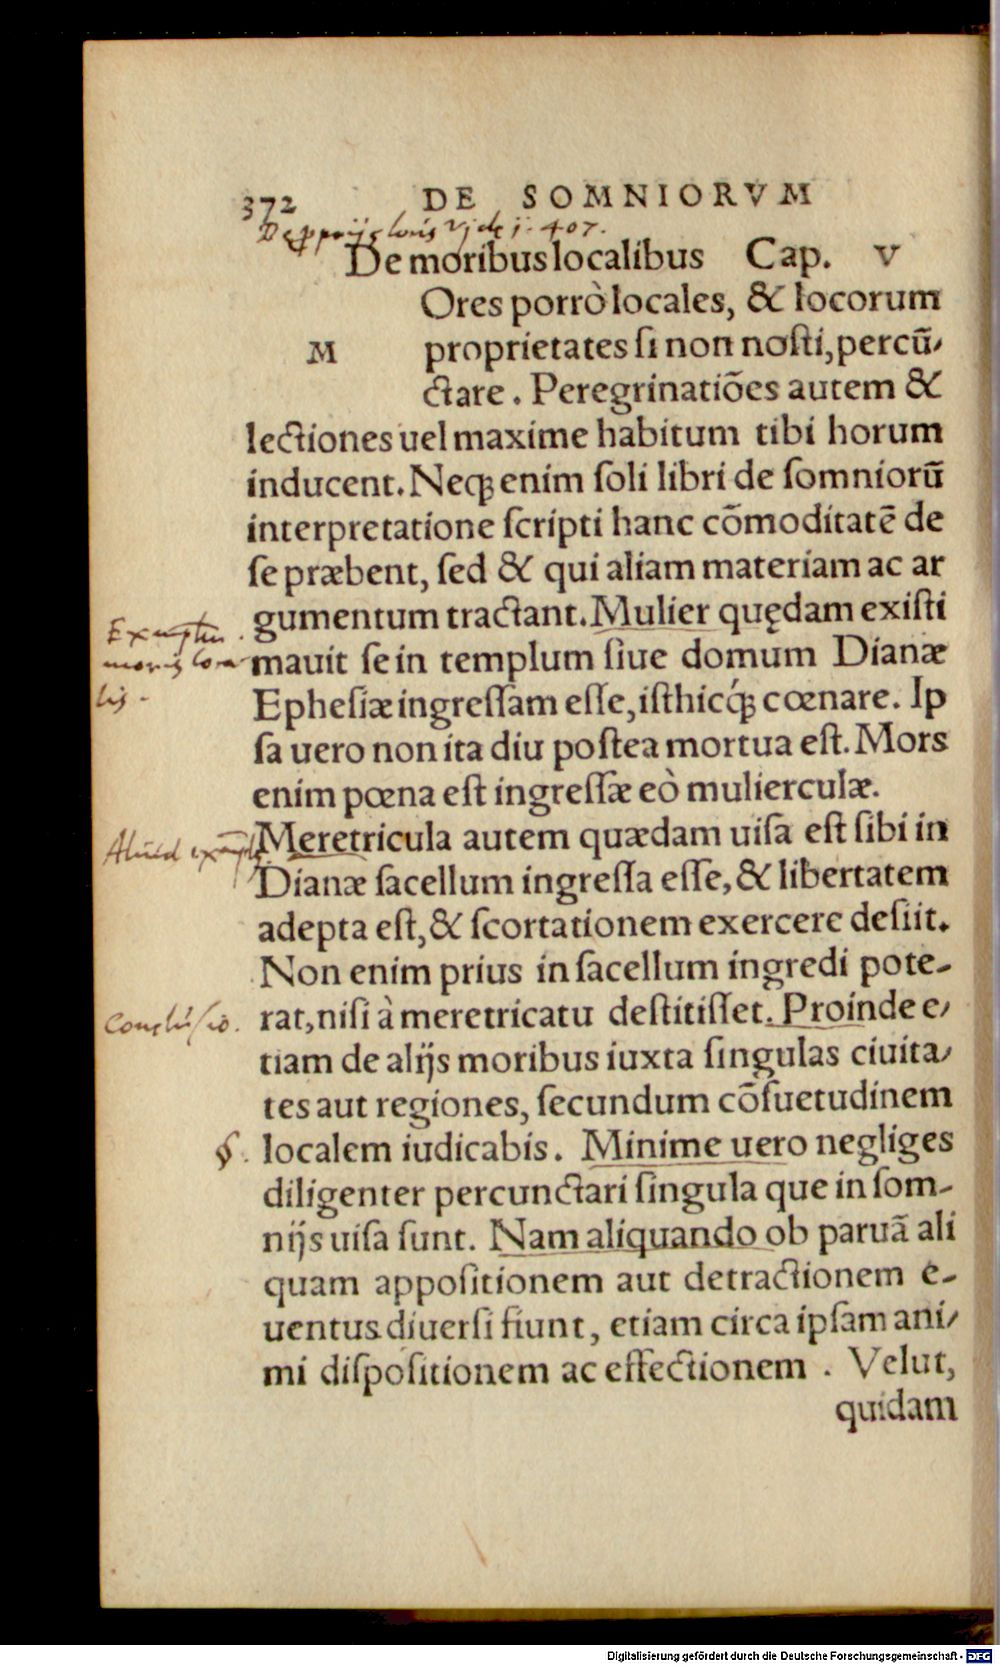 372 DE SOMNIORVM
vide j. 407.
De moribus localibus Cap. V
M Ores porrò locales, & locorum
proprietates si non nosti, percū/
ctare. Peregrinatiões autem &
lectiones uel maxime habitum tibi horum
inducent. Neqꝫ enim soli libri de somniorū
interpretatione scripti hanc cõmoditatē de
se præbent, sed & qui aliam materiam ac ar
gumentum tractant. Mulier quędam existi
Exemplum
mauit se in templum siue domum Dianæ
moris loca
lis.
Ephesiæ ingressam esse, isthicq́ꝫ cœnare. Ip
sa uero non ita diu postea mortua est. Mors
enim pœna est ingressæ eò mulierculæ.
Aliud exempl
Meretricula autem quædam uisa est sibi in
Dianæ sacellum ingressa esse, & libertatem
adepta est, & scortationem exercere desiit.
Non enim prius in sacellum ingredi pote-
Conclusio.
rat, nisi à meretricatu destitisset. Proinde e/
tiam de alijs moribus iuxta singulas ciuita/
tes aut regiones, secundum cõsuetudinem
§. localem iudicabis. Minime uero negliges
diligenter percunctari singula que in som-
nijs uisa sunt. Nam aliquando ob paruã ali
quam appositionem aut detractionem e-
uentus diuersi fiunt, etiam circa ipsam ani/
mi dispositionem ac effectionem. Velut,
quidam
Digitalisierung gefördert durch die Deutsche Forschungsgemeinschaft - DFG